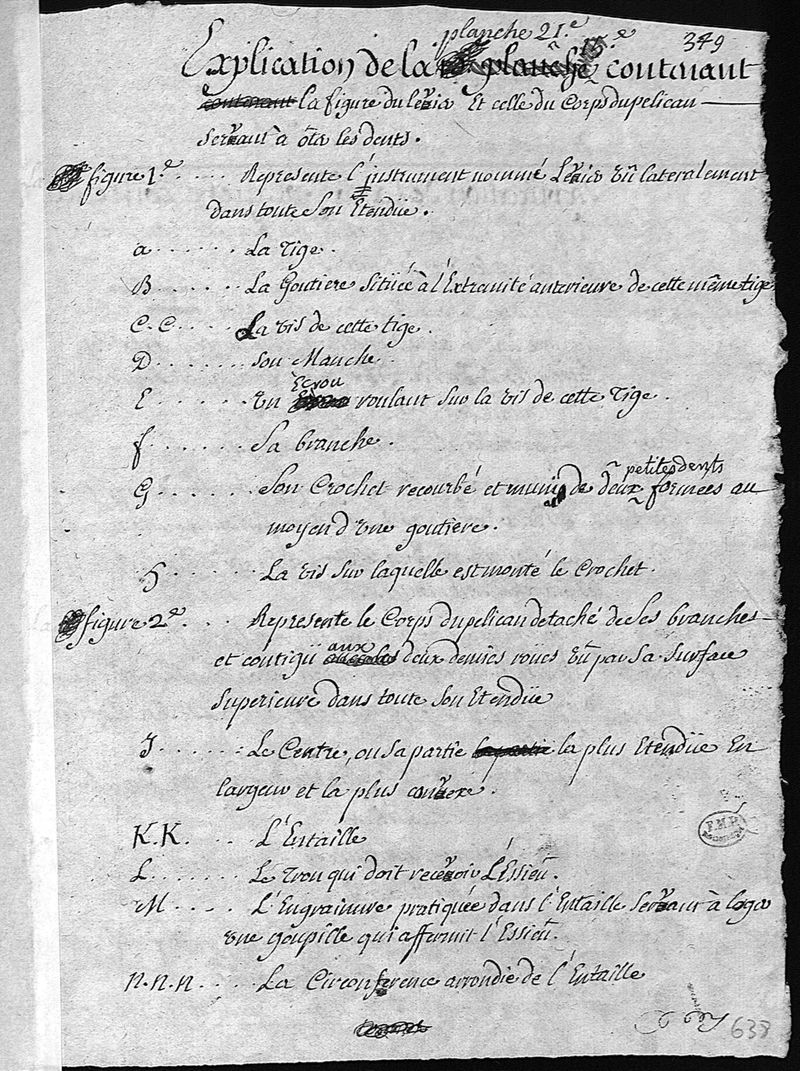 planche 21.e
349
Explication de la planche 15.e contenant
contenant la figure du levier Et celle du Corps du pelican
servant à oter les dents.
figure 1.e ..... Represente l'instrument nommé Levier vû lateralement
dans toute son Etendüe.
a ....... La Tige.
B ....... La Goutiere Sitüée à l'Extramité anterieure de cette même tige
C.C. .... La vis de cette tige.
D ....... son Manche.
Ecrou
E ....... Un roulant sur la vis de cette Tige.
f ....... Sa branche.
petites dents
G ....... Son Crochet recourbé et muni de deux formées au
moyen d'une goutiere.
H ....... La vis sur laquelle est monté le Crochet.
figure 2.e .... Represente le Corps du pelican detaché de ses branches
aux
et contigü deux demies roües vû par sa surface
superieure dans toute son Etendüe
J ....... Le Centre, ou sa partie la partie la plus Etendüe En
largeur et la plus convexe.
K.K. .... L'Entaille
L ....... Le Trou qui doit recevoir L'Essieu.
M ..... L'Engrainure pratiquée dans l'Entaille servant à loger
une goupille qui affermit l'Essieu.
n.n.n .... La Circonference arrondie de l'Entaille
638